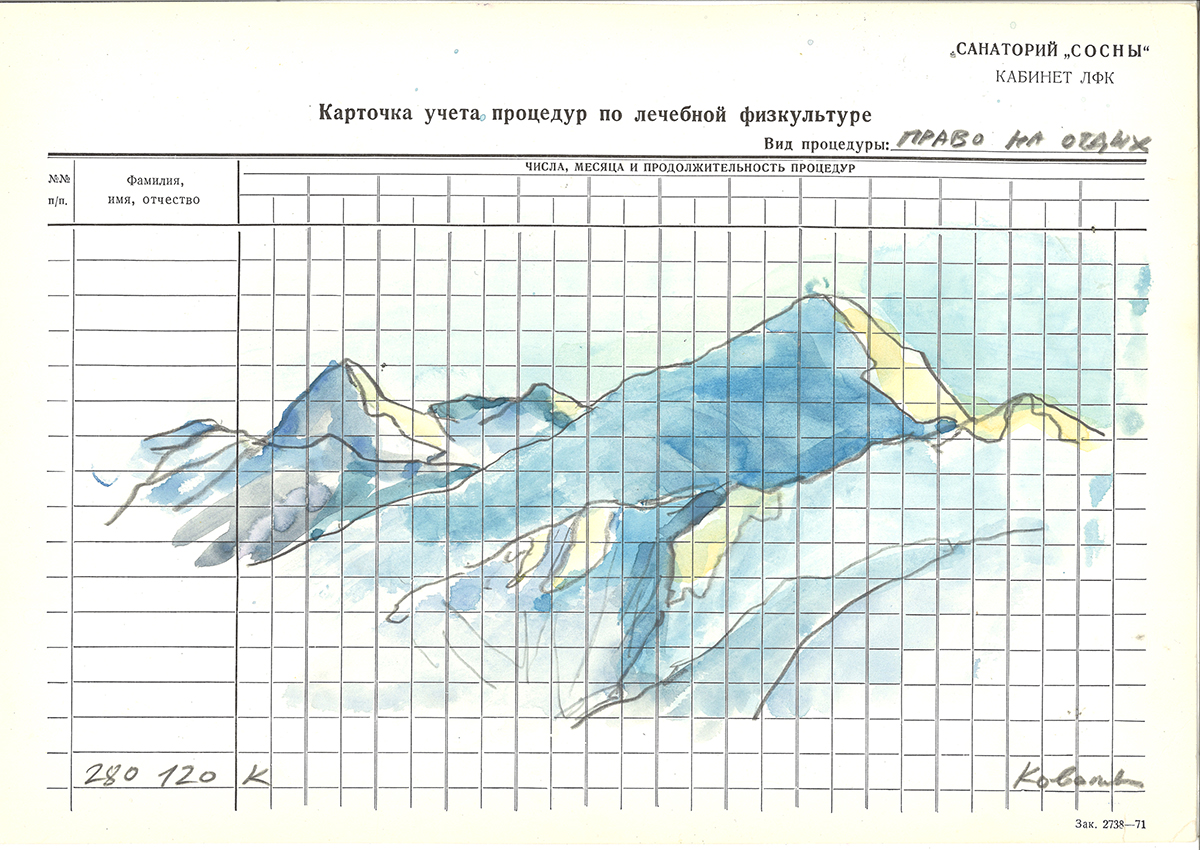 „САНАТОРИЙ „СОСНЫ“
КАБИНЕТ ЛФК
Карточка учета процедур по лечебной физкультуре
Вид процедуры: ПРАВО НА ОТДЫХ
№№ п/п.
Фамилия, имя, отчество
ЧИСЛА, МЕСЯЦА И ПРОДОЛЖИТЕЛЬНОСТЬ ПРОЦЕДУР
280 120 К
Зак. 2738—71